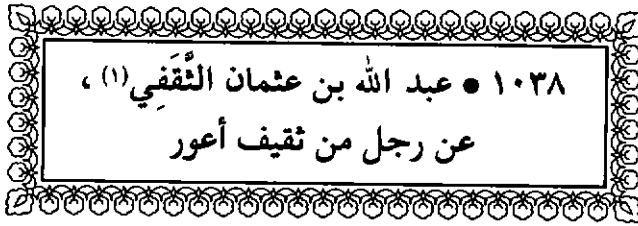 ١٠٣٨ • عبد الله بن عثمان الثَّقَفِي (١) ،
عن رجل من ثقيف أعور